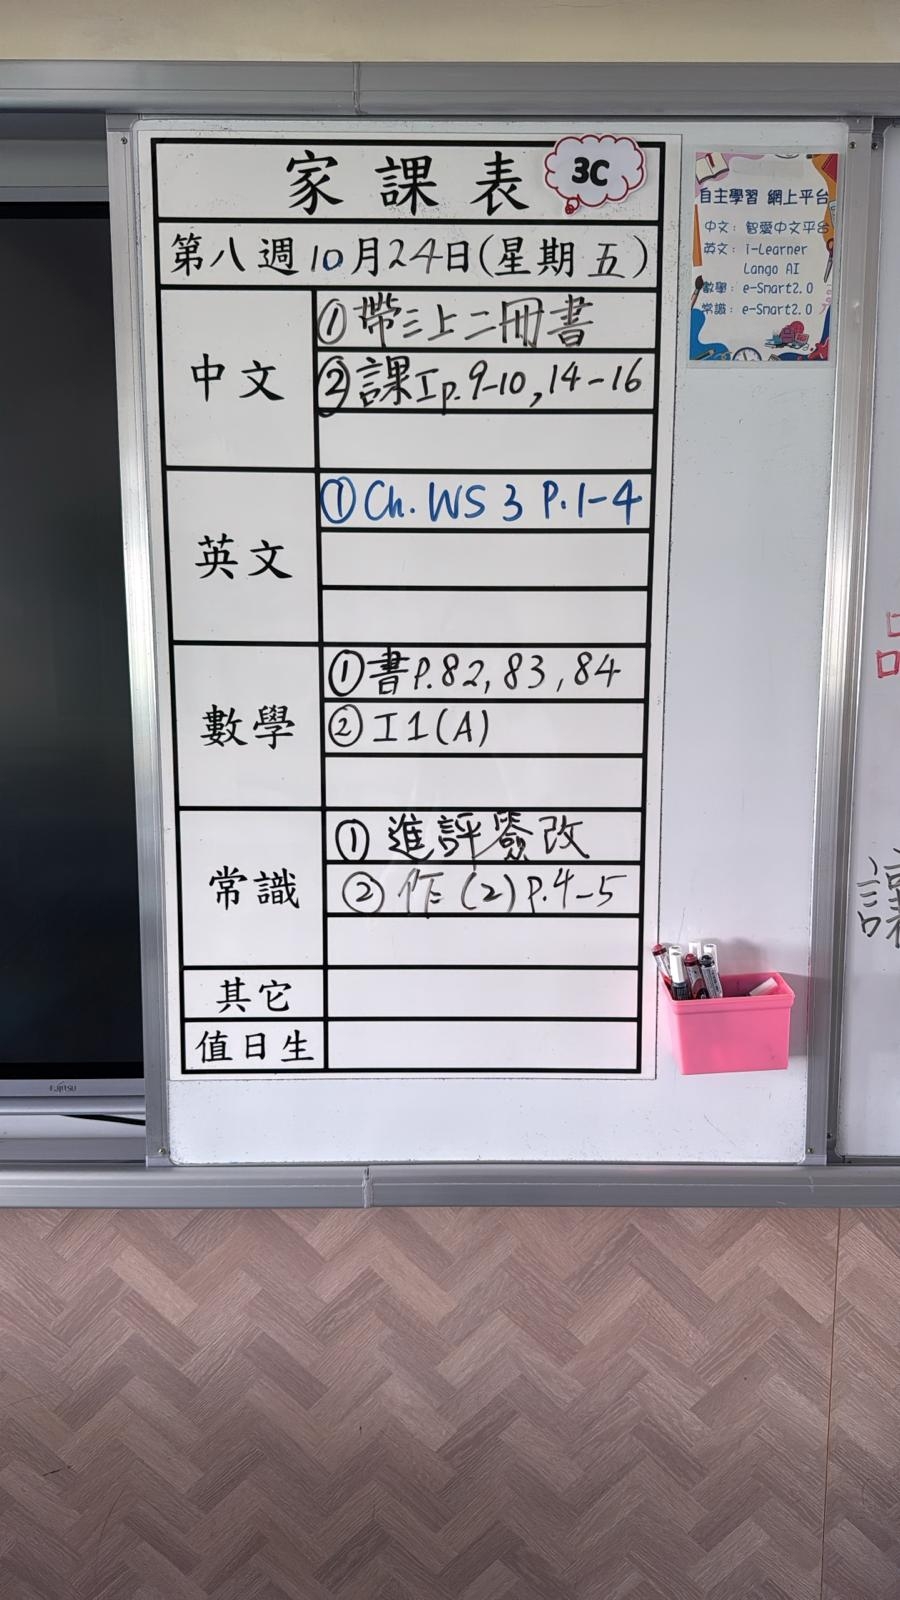 家課表
3C
第八週10月24日(星期五)
中文
①帶三上二冊書
②課工p.9-10,14-16
英文
①Ch. WS 3 P.1-4
數學
①書P.82,83,84
②工1(A)
常識
①進評簽改
②作(2)P.4-5
其它
值日生
自主學習 網上平台
中文：智愛中文平台
英文：i-Learner
Lango AI
數學：e-Smart2.0
常識：e-Smart2.0
FUJITSU